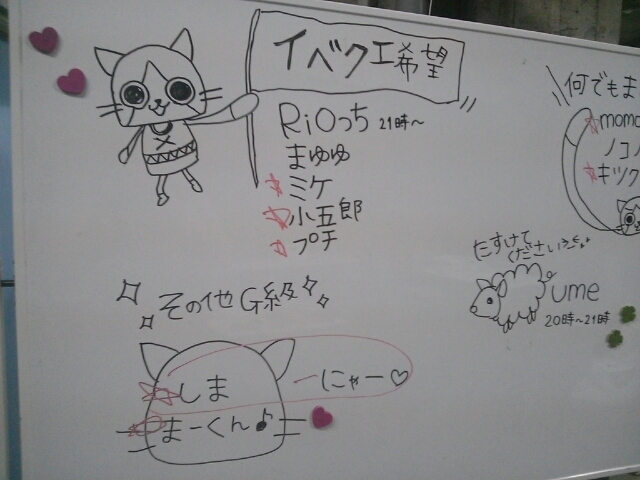 イベクエ希望
RiOっち 21時～
まゆゆ
☆ミケ
☆小五郎
☆プチ
\何でもま
☆momo
ノコノ
☆キック
たすけて
ください
ume
20時～21時
その他G級
☆しま
まーくん♪
ーにゃー♡